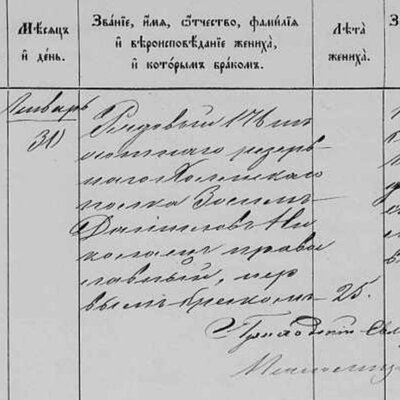 Мѣсяцъ
и день.
Званіе, имя, отчество, фамилія
и вѣроисповѣданіе жениха,
и которымъ бракомъ.
Лѣта
жениха.
З
Январь
30
Рядовый 178 пѣ
хотнаго резерв
наго Холмскаго
полка Зосимъ
Даніиловъ Ни
колаецъ право
славный, пер
вымъ бракомъ 25.